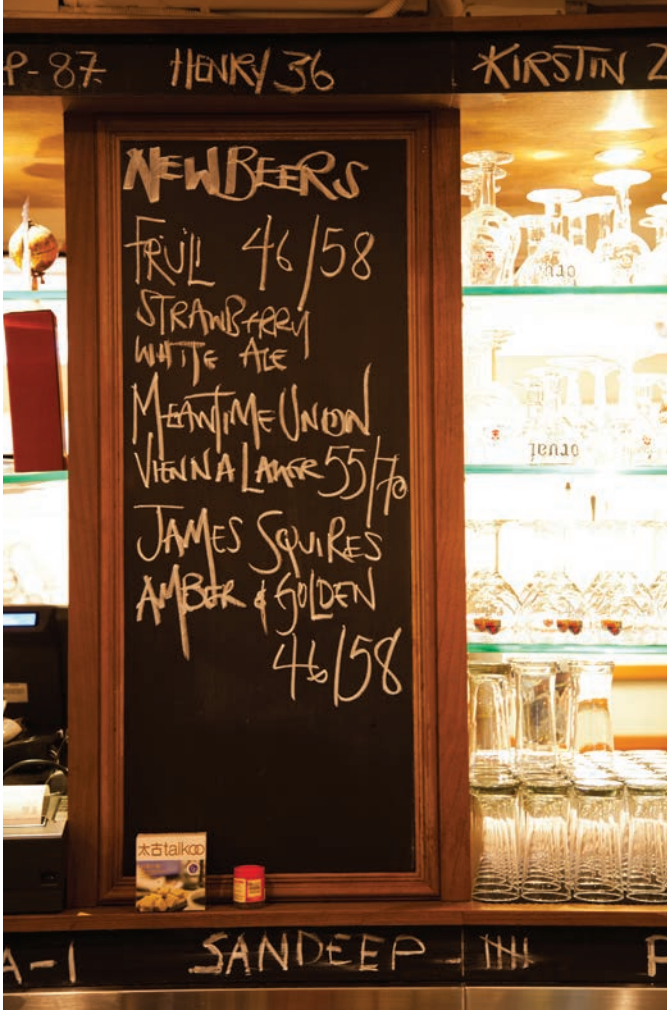 P-87 HENRY 36 *KIRSTIN 2
NEW BEERS
FRÜLI 46/58
STRAWBERRY
WHITE ALE
MEANTIME UNION
VIENNA LAGER 55/70
JAMES SQUIRES
AMBER & GOLDEN
46/58
太古taikoo
A-1 SANDEEP - IIII